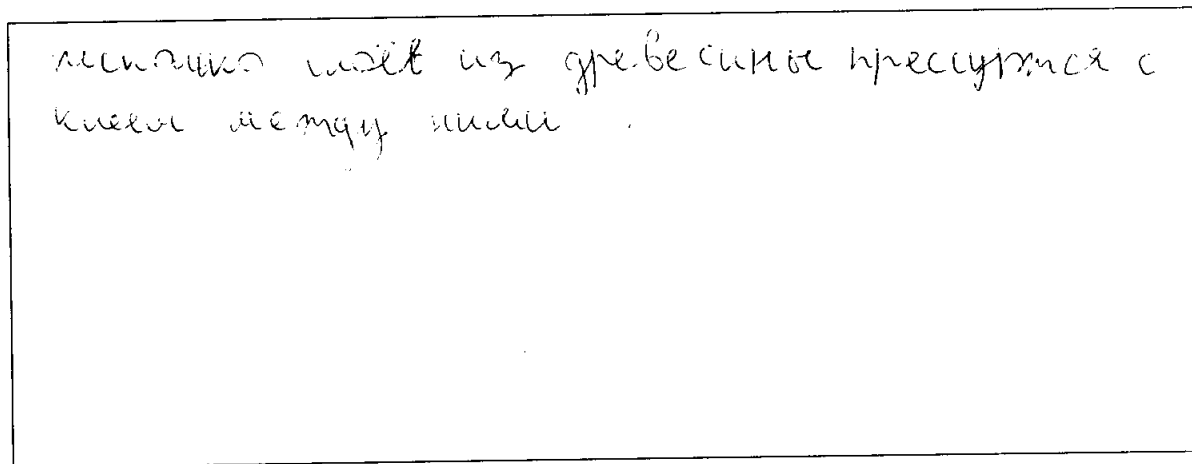 несколько слоёв из древесины прессуются с
клеем между ними .